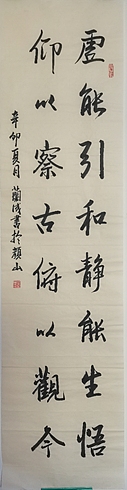 虚能引和静能生悟
仰以察古俯以觀今
辛卯夏月蘭成書於顏山